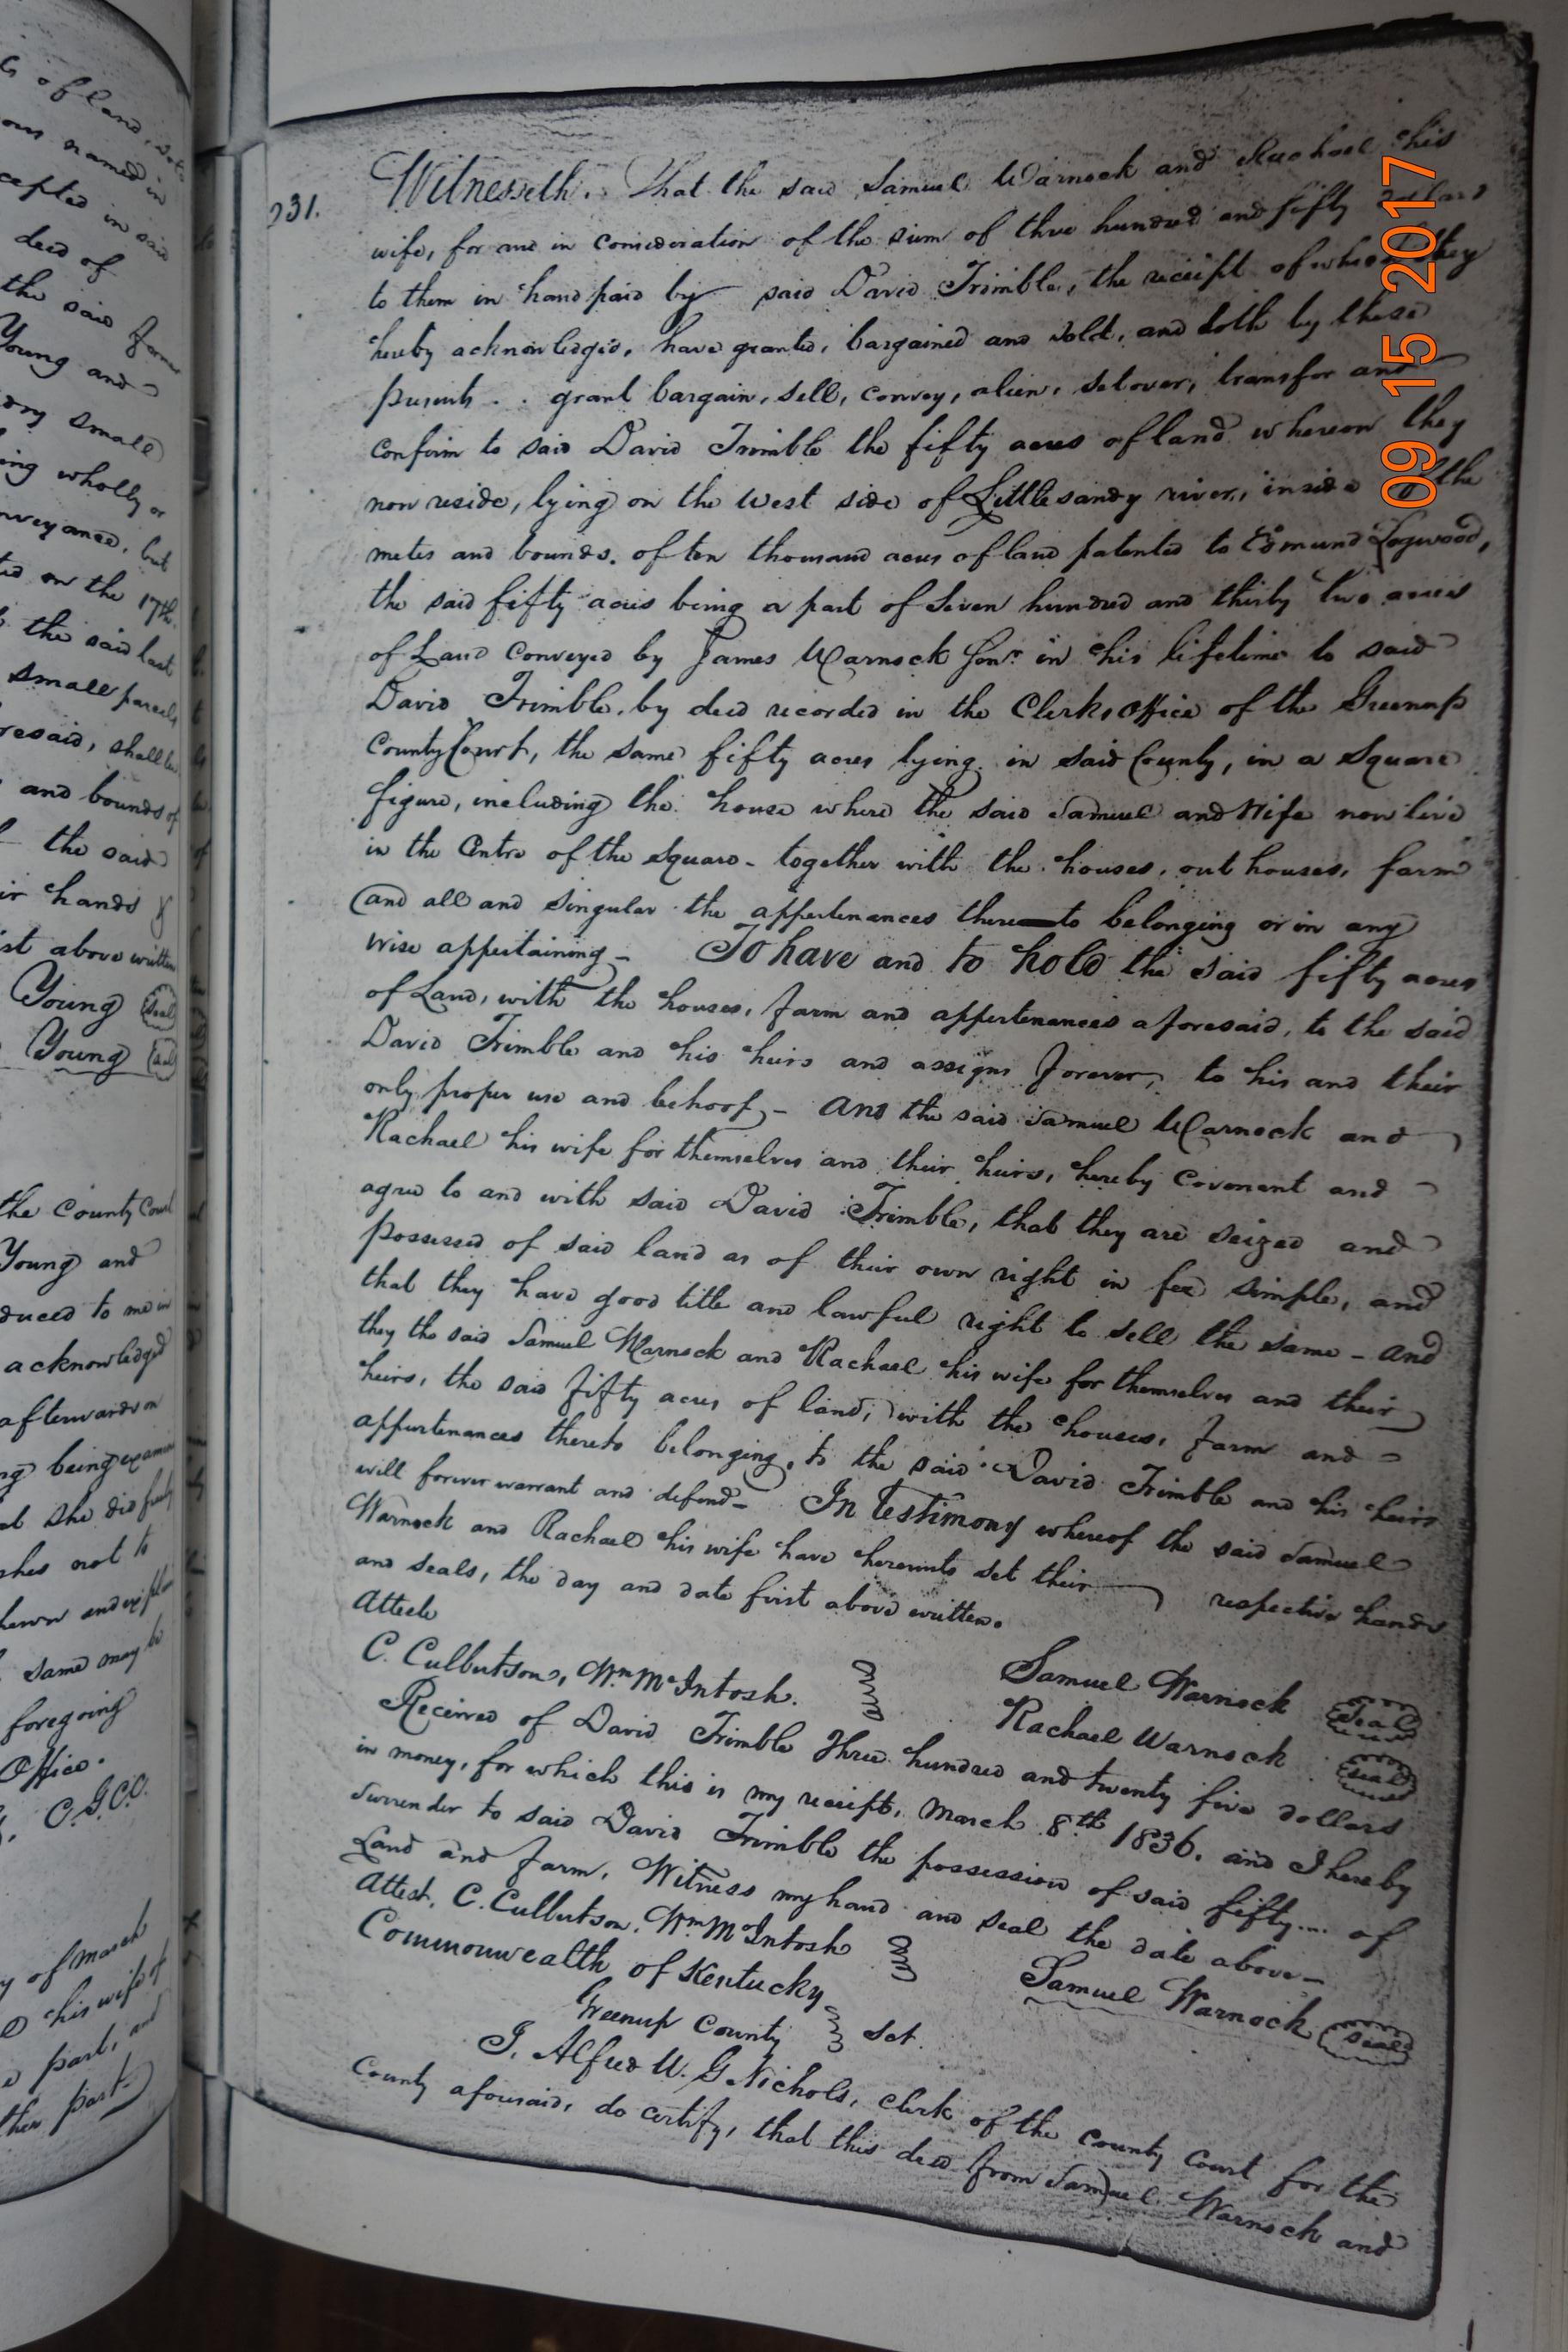 ts of land,
ous named in
cepted in said
deed of
the said
Young and
small
ing wholly or
nveyance, but
ted on the 17th
the said last
small parcels
resaid, shall be
and bounds of
the said
ir hands &
st above written
Young Seal
Young Seal
the County Court
Young and
duced to me in
acknowledged
afterwards on
ng being
she did freely
shes not to
same may be
foregoing
Office.
C.G.C.C.
y of march
his wife of
part, and
ther part
231.
Witnesseth. That the said Samuel Warnock and Rachael his
wife, for and in consideration of the sum of three hundred and fifty dollars
to them in hand paid by said David Trimble, the receipt of which they
hereby acknowledged, have granted, bargained and sold, and doth by these
presents . . grant bargain, sell, convey, alien, setover, transfer and
confirm to said David Trimble the fifty acres of land whereon they
now reside, lying on the west side of Little sandy river, inside of the
metes and bounds. of ten thousand acres of land patented to Edmund Logwood,
the said fifty acres being a part of Seven hundred and thirty two acres
of Land conveyed by James Warnock Senr. in his lifetime to said
David Trimble, by deed recorded in the Clerks Office of the Greenup
County Court, the same fifty acres lying in said County, in a Square
figure, including the house where the said Samuel and Wife now live
in the Centre of the square - together with the houses, out houses, farm
and all and singular the appertenances thereto belonging or in any
wise appertaining - To have and to hold the said fifty acres
of Land, with the houses, farm and appertenances aforesaid, to the said
David Trimble and his heirs and assigns forever, to his and their
only proper use and behoof, - And the said Samuel Warnock and
Rachael his wife for themselves and their heirs, hereby Covenent and
agree to and with said David Trimble, that they are seized and
possessed of said land as of their own right in fee simple, and
that they have good title and lawful right to sell the same - and
they the said Samuel Warnock and Rachael his wife for themselves and their
heirs, the said fifty acres of land, with the houses, farm and
appurtenances thereto belonging, to the said David Trimble and his heirs
will forever warrant and defend - In Testimony whereof the said Samuel
Warnock and Rachael his wife have hereunto set their respective hands
and seals, the day and date first above written.
Atteste
C. Culbertson, Wm McIntosh. Samuel Warnock Seal
Rachael Warnock Seal
Received of David Trimble Three hundred and twenty five dollars
in money, for which this is my receipt, March 8th 1836. and I hereby
surrender to said David Trimble the possession of said fifty.... of
Land and farm, Witness my hand and seal the date above -
Attest, C. Culbertson, Wm McIntosh Samuel Warnock Seal
Commonwealth of Kentucky
Greenup County Sct.
I, Alfred W. G Nichols, clerk of the County Court for the
County aforesaid, do certify, that this deed from Samuel Warnock and
09 15 2017